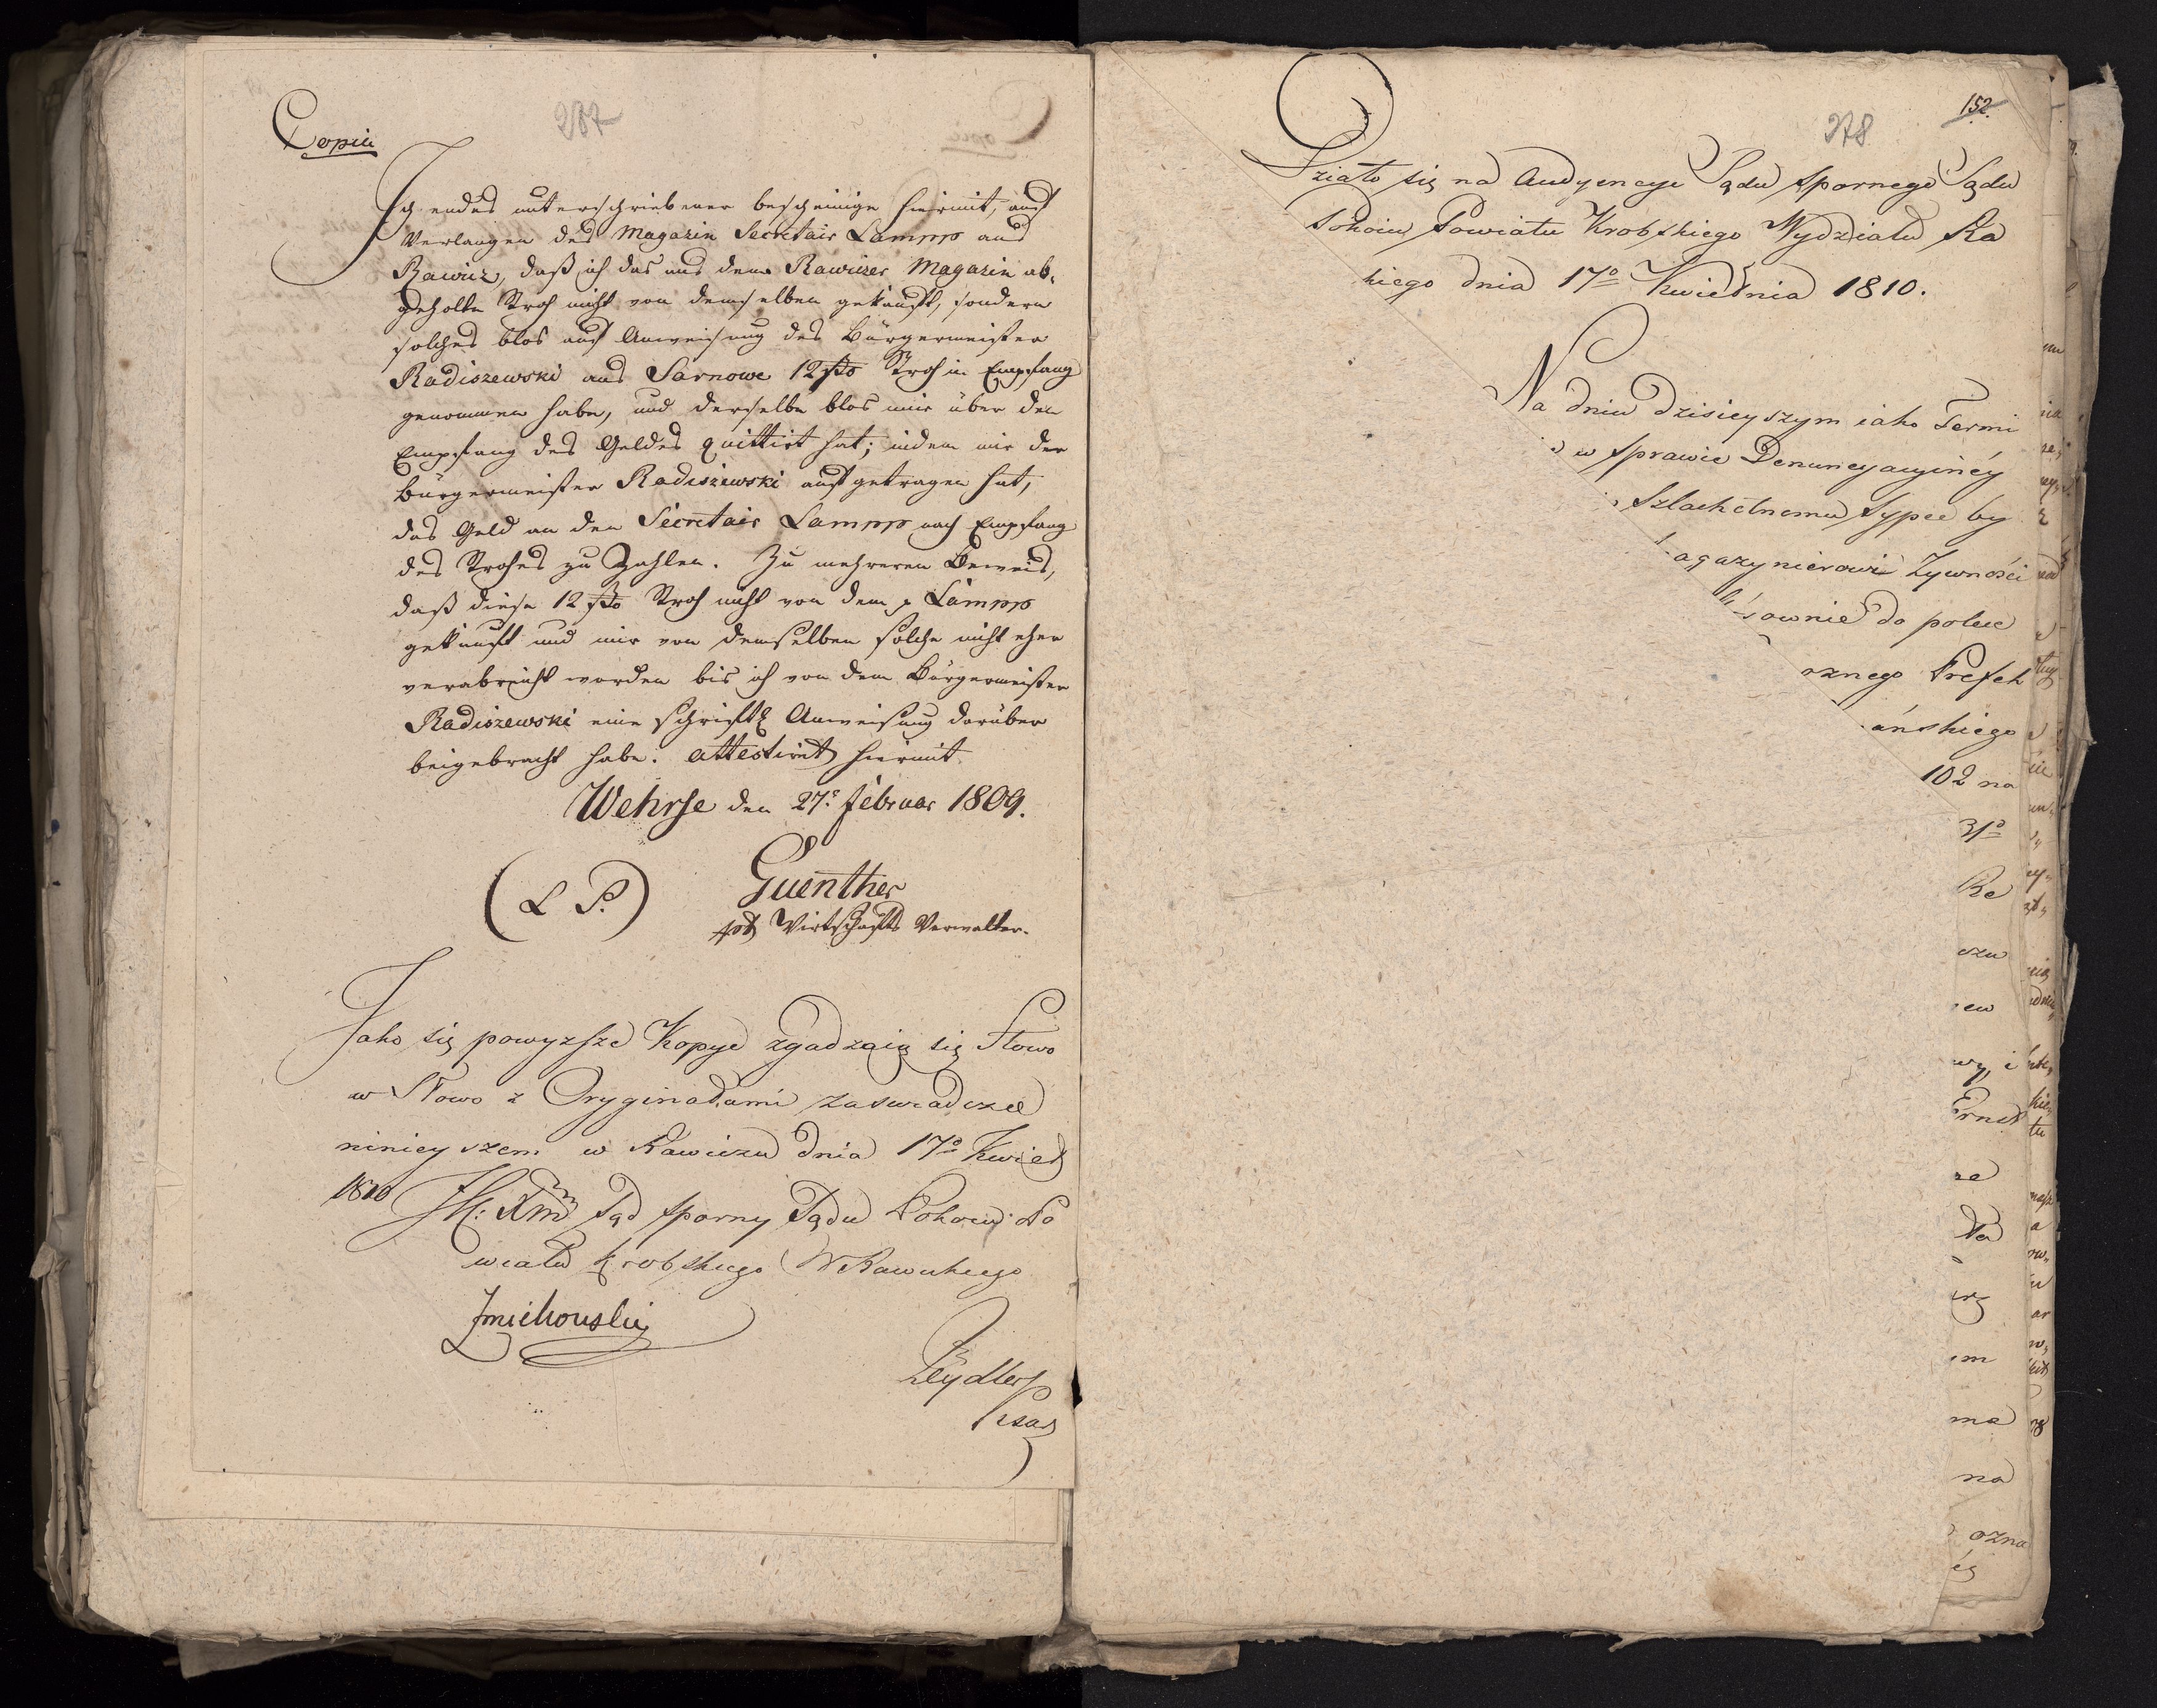 Copia
287
Ich endes unterschriebener bescheinige hiermit, auf
Verlangen des Magazin Secretair Lampp aus
Rawicz, daß ich das aus dem Rawiczer Magazin ab-
geholte Stroh nicht von demselben gekauft, sondern
solches blos auf Anweisung des Bürgermeister
Radiszewski aus Sarnowe 12 ßo Stroh in Empfang
genommen habe, und derselbe blos mir über den
Empfang des Geldes quittirt hat; indem mir der
Bürgermeister Radiszewski aufgetragen hat,
das Geld an den Secretair Lampp nach Empfang
des Strohes zu Zahlen. Zu mehreren Beweis,
daß diese 12 ßo Stroh nicht von dem p Lampp
gekauft und mir von demselben solche nicht eher
verabreicht worden bis ich von dem Bürgermeister
Radiszewski eine schriftl Anweisung darüber
beigebracht habe. attestirt hiermit
Wehrse den 27t Februar 1809.
(L S.)
Guenther
Wirtschafts Verwalter.
Jako się powyzsze Kopye zgadzaią się Słowo
w Słowo z Oryginałami zaswiadcza
ninieyszem w Rawiczu dnia 17o Kwiet
1810
Sąd sporny Sądu Pokoiu Po
wiatu Krobskiego W Rawickiego
Zmichouski
Zeydler
Pisarz
152
278
Działo się na Audyencyi Sądu Spornego Sądu
Pokoiu Powiatu Krobskiego Wydziału Ra
kiego dnia 17o Kwietnia 1810.
Na dniu dzisieyszym iako Termi
w Sprawie Denuncyacyiney
Szlachetnemu Sypce by
agazynierowi Zywności
sownie do polece
cznego Prefek
ańskiego
102 na
31o
Re
szu
ew
wy, i
Ernst
ze
Na
erz
em
ma
na
ozna